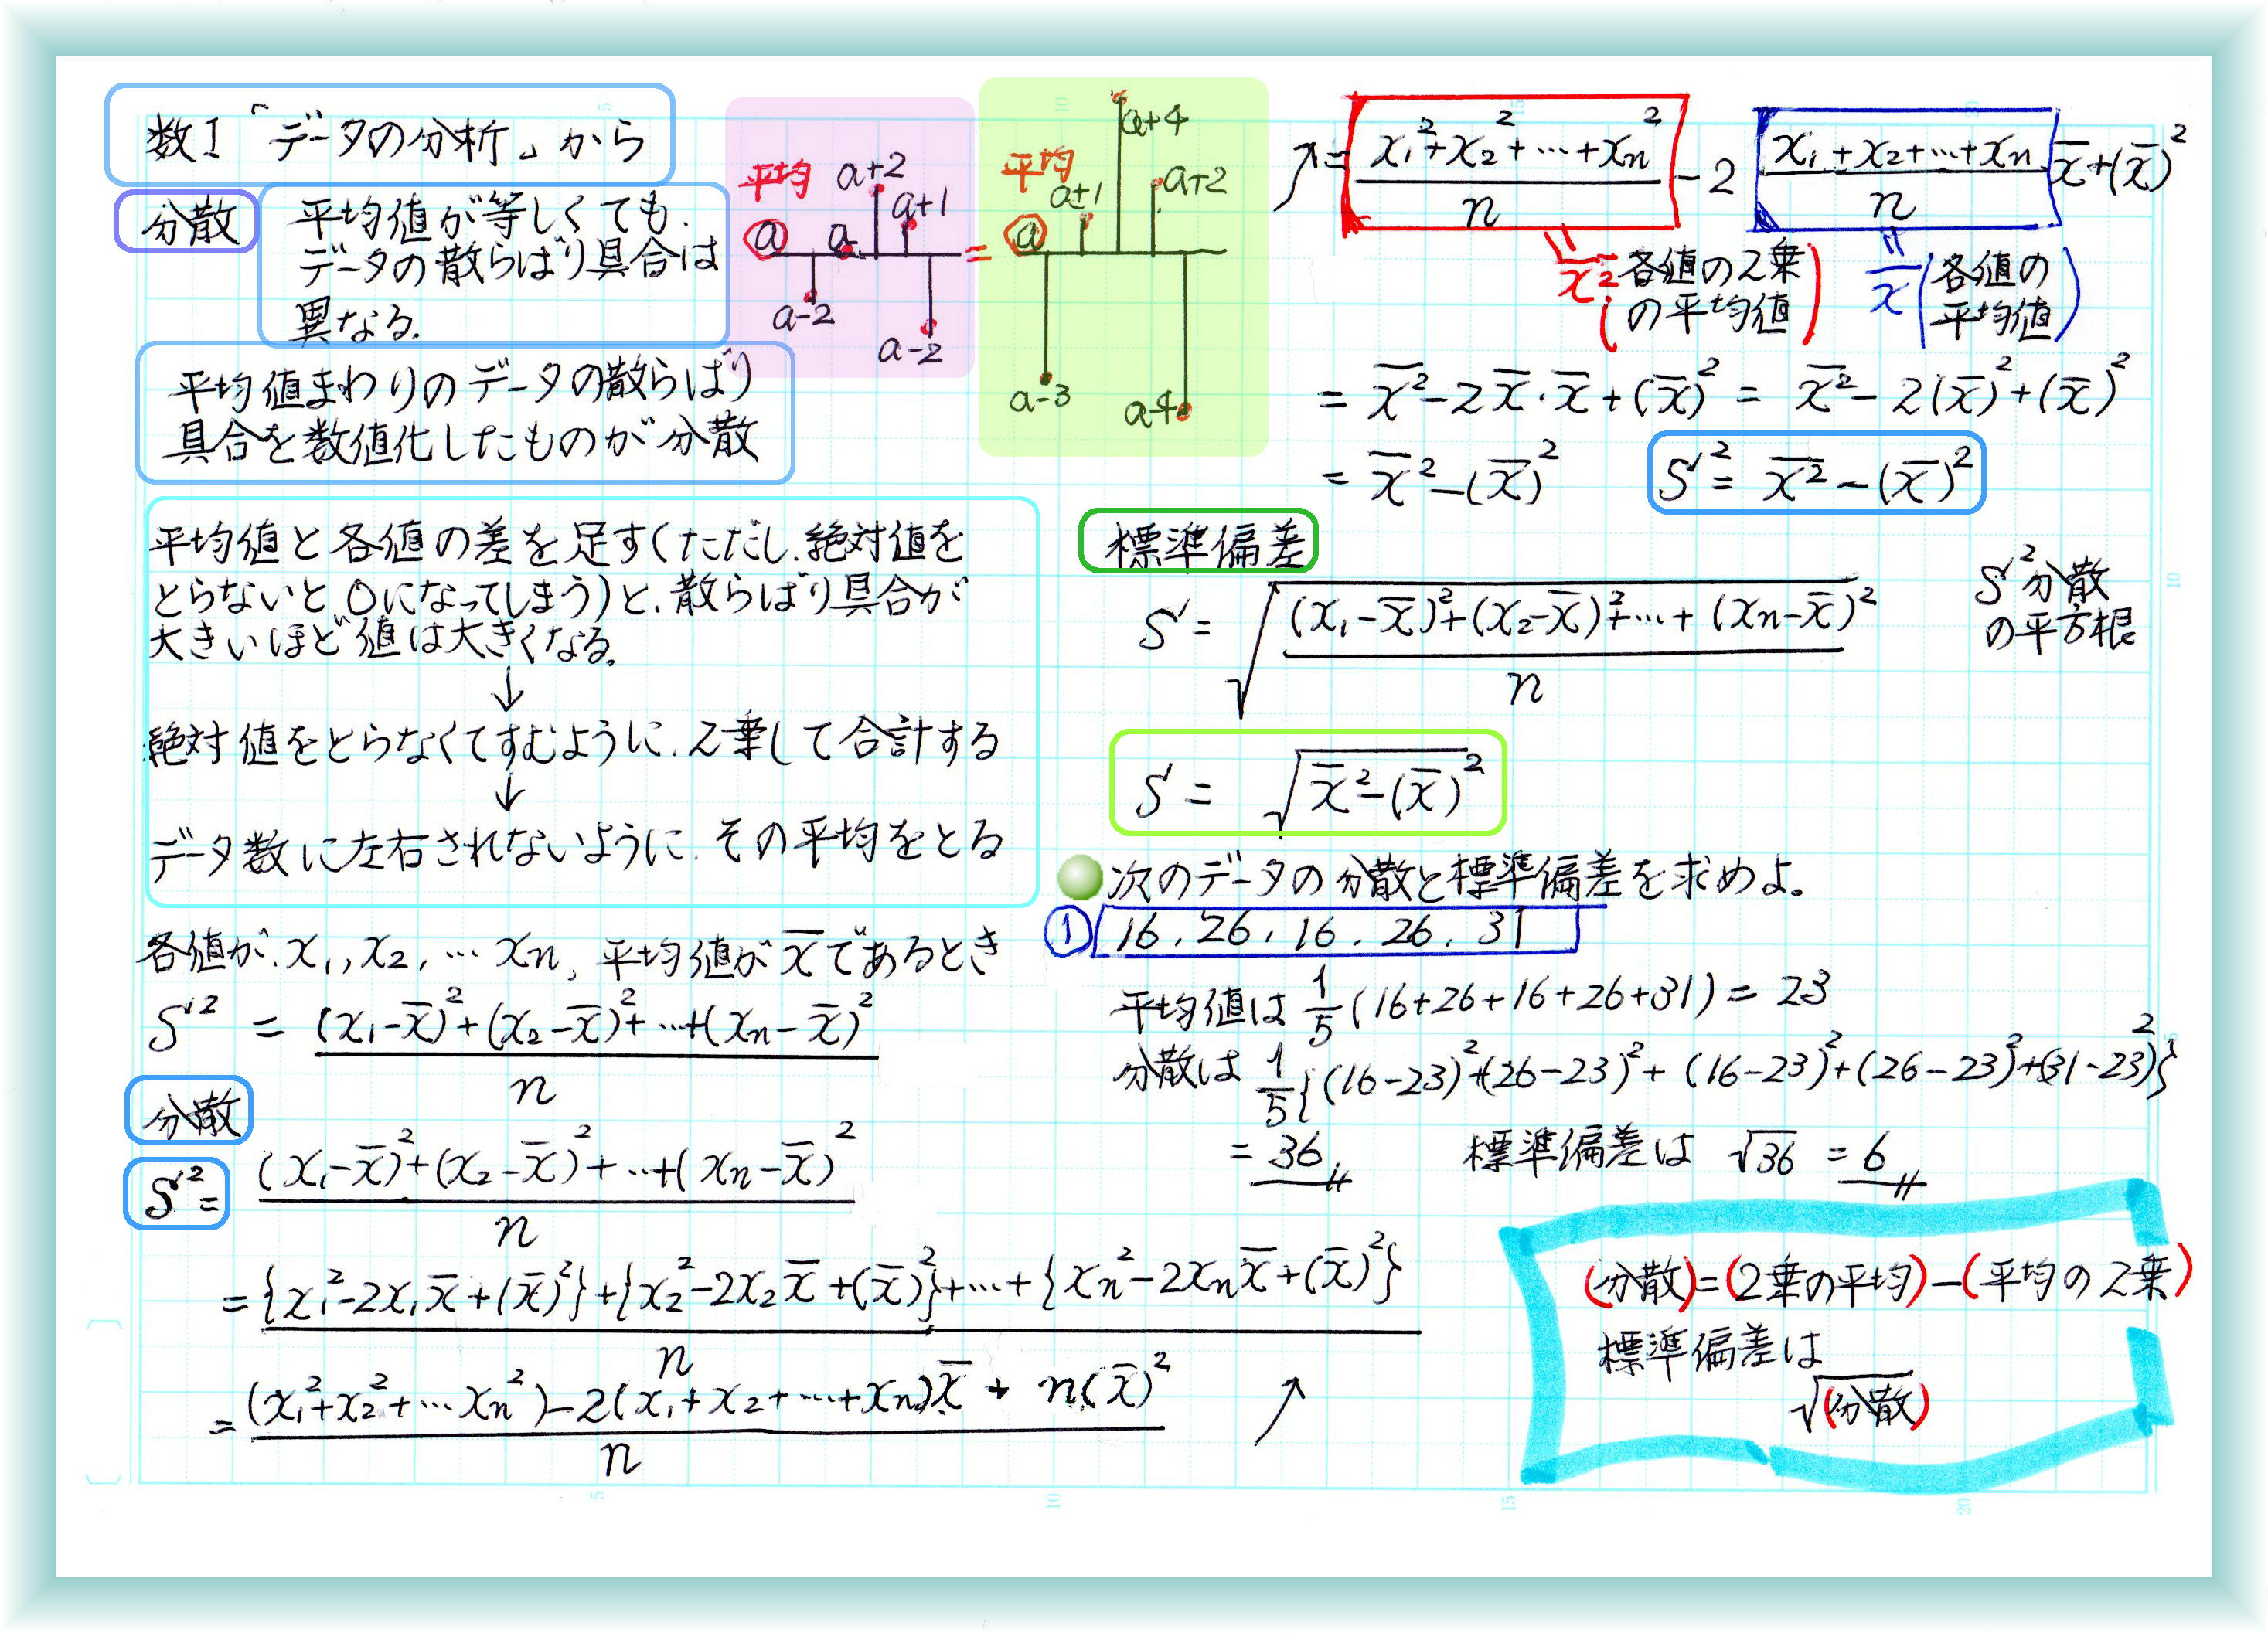 数I「データの分析」から
分散
平均値が等しくても.
データの散らばり具合は
異なる.
平均値まわりのデータの散らばり
具合を数値化したものが分散
平均 a+2
a+1
a a
a-2
a-2
=
a+4
平均
a+1 a+2
a
a-3
a-4
平均値と各値の差を足す(ただし.絶対値を
とらないと0になってしまう)と.散らばり具合が
大きいほど値は大きくなる.
↓
絶対値をとらなくてすむように.2乗して合計する
↓
データ数に左右されないように.その平均をとる
各値が.x₁,x₂,…xₙ, 平均値がx̄であるとき
S² = (x₁-x̄)²+(x₂-x̄)²+…+(xₙ-x̄)²
n
分散
S²= (x₁-x̄)²+(x₂-x̄)²+…+(xₙ-x̄)²
n
={x₁²-2x₁x̄+(x̄)²}+{x₂²-2x₂x̄+(x̄)²}+…+{xₙ²-2xₙx̄+(x̄)²}
n
=(x₁²+x₂²+…xₙ²)-2(x₁+x₂+…+xₙ)x̄+n(x̄)²
n
↗
↗= x₁²+x₂²+…+xₙ² / n -2 x₁+x₂+…+xₙ / n x̄+(x̄)²
\overline{x²} (各値の2乗の平均値)
x̄ (各値の平均値)
= \overline{x²}-2x̄·x̄+(x̄)² = \overline{x²}-2(x̄)²+(x̄)²
= x̄²-(x̄)²
S²= \overline{x²}-(x̄)²
標準偏差
S = √((x₁-x̄)²+(x₂-x̄)²+…+(xₙ-x̄)² / n)
S²分散
の平方根
S = √(x̄²-(x̄)²)
次のデータの分散と標準偏差を求めよ。
① 16, 26, 16, 26, 31
平均値は 1/5(16+26+16+26+31)=23
分散は 1/5{(16-23)²+(26-23)²+(16-23)²+(26-23)²+(31-23)²}
=36 標準偏差は √36 =6
(分散)=(2乗の平均)-(平均の2乗)
標準偏差は
√(分散)
5
10
15
20
5
10
15
20
10
5